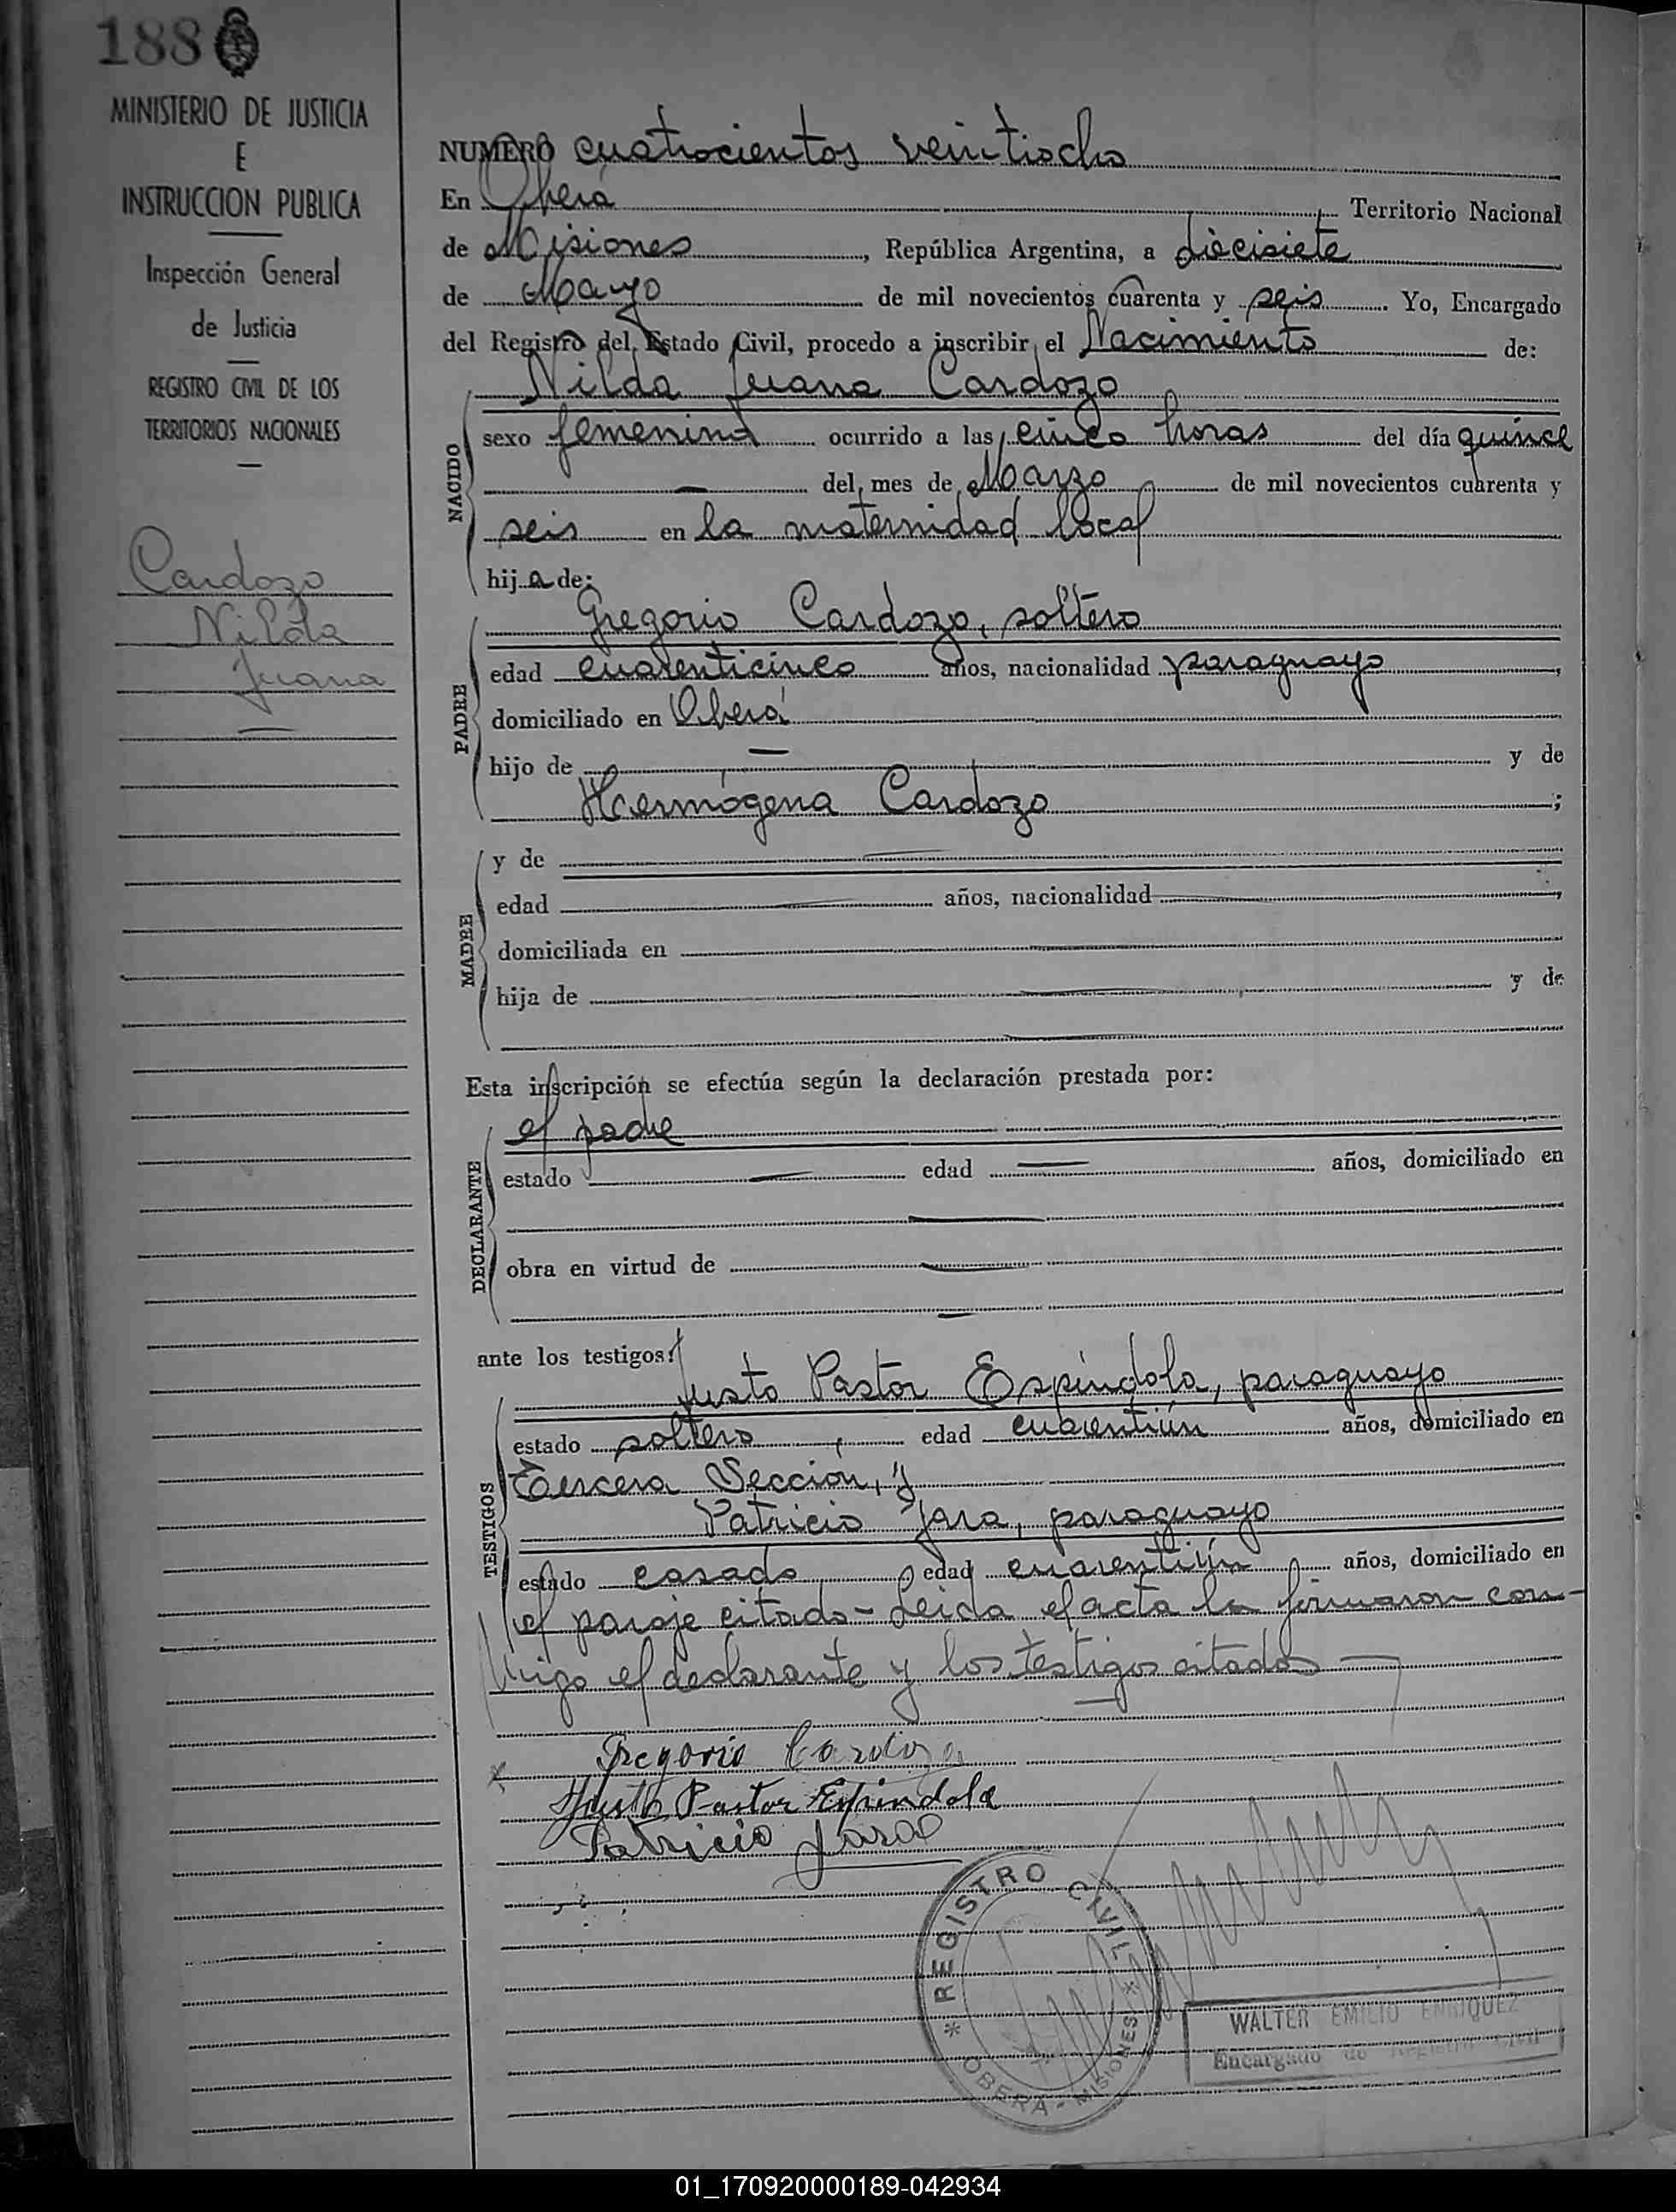 188
MINISTERIO DE JUSTICIA
E
INSTRUCCION PUBLICA
Inspección General
de Justicia
REGISTRO CIVIL DE LOS
TERRITORIOS NACIONALES
Cardozo
Nilda
Juana
NUMERO cuatrocientos veintiocho
En Oberá Territorio Nacional
de Misiones, República Argentina, a diecisiete
de Mayo de mil novecientos cuarenta y seis Yo, Encargado
del Registro del Estado Civil, procedo a inscribir el Nacimiento de:
Nilda Juana Cardozo
NACIDO
sexo femenino ocurrido a las cinco horas del día quince
del mes de Marzo de mil novecientos cuarenta y
seis en la maternidad local
hija de:
PADRE
Gregorio Cardozo, soltero
edad cuarenticinco años, nacionalidad paraguayo,
domiciliado en Oberá
hijo de — y de
Hermógena Cardozo;
MADRE
y de
edad años, nacionalidad,
domiciliada en
hija de y de
Esta inscripción se efectúa según la declaración prestada por:
DECLARANTE
el padre
estado — edad — años, domiciliado en
obra en virtud de
ante los testigos:
TESTIGOS
Justo Pastor Espíndola, paraguayo
estado soltero, edad cuarentiún años, domiciliado en
Tercera Sección, y
Patricio Jara, paraguayo
estado casado edad cuarentiún años, domiciliado en
el paraje citado - Leida el acta la firmaron con-
migo el declarante y los testigos citados
Gregorio Cardozo
Justo Pastor Espindola
Patricio Jara
* REGISTRO CIVIL *
OBERA - MISIONES
WALTER EMILIO ENRIQUEZ
Encargado de Registro Civil
01_170920000189-042934